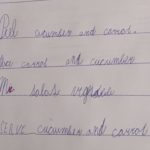 Peel cucumber and carrot.
carrot and cucumber
salads vegetable
SERVE cucumber and carrot